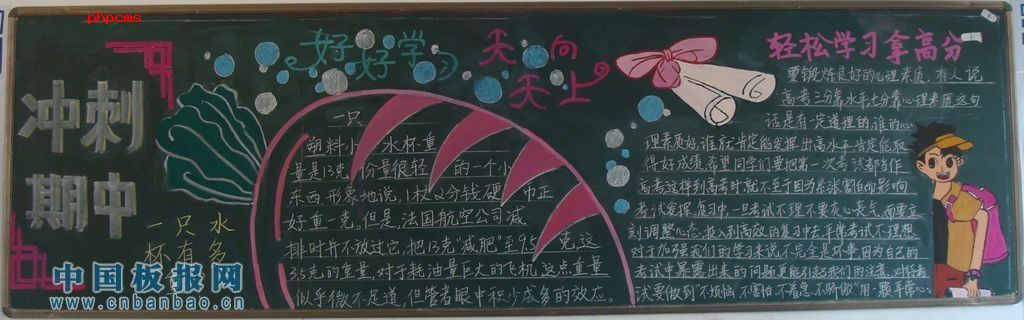 phpcms
冲刺
期中
好好学习
天向
天上
轻松学习拿高分
一只水
杯有多
一只
塑料小水杯重
量是13克,份量很轻的一个小
东西,形象地说,1枚2分钱硬币正
好重一克。但是,法国航空公司减
排时并不放过它,把13克“减肥”至9.5克,这
3.5克的重量,对于耗油量巨大的飞机,这点重量
似乎微不足道,但管者眼中积少成多的效应。
要锻炼良好的心理素质,有人说
高考三分靠水平七分靠心理素质这句
话是有一定道理的,谁的心
理素质好,谁就肯定能发挥出高水平肯定能取
得好成绩,希望同学们要把第一次考试都当作
高考这样到高考时就不至于因为紧张害怕而影响
考试发挥,复习中,一旦考试不理不要灰心丧气,而要立
刻调整心态,投入到高效的复习中去,平常考试不理想
对于加强我们的学习来说不完全是坏事,因为自己的
考试中暴露出来的问题更能引起我们的注意,对待考
试要做到“不烦恼,不害怕,不着急,不骄傲”用一颗平常心
中国板报网
www.cnbanbao.cn